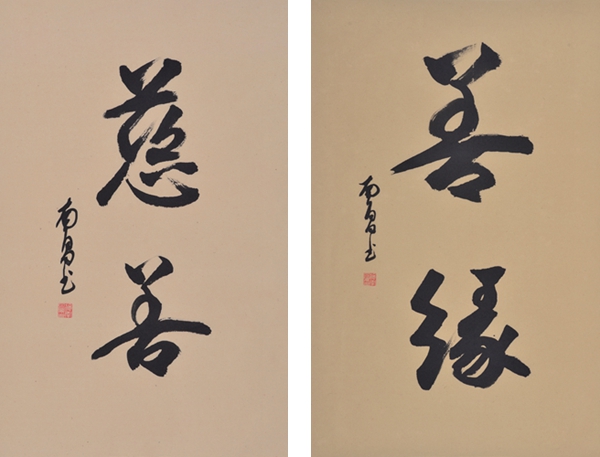 慈善
南昌书
善缘
南昌书